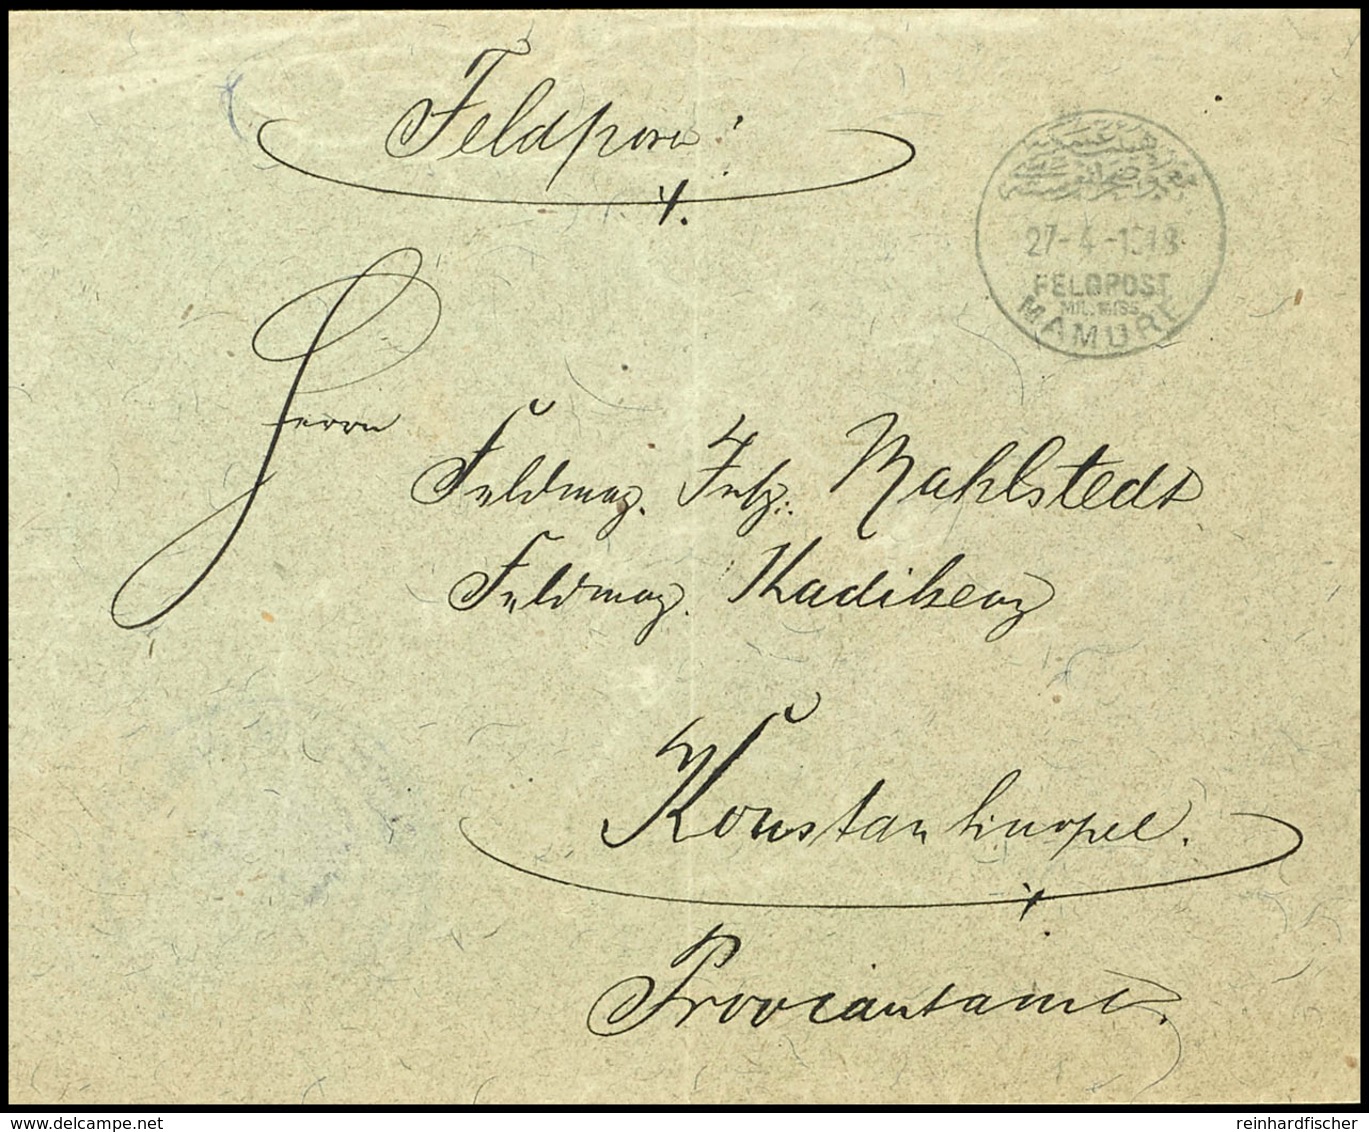 Feldpost!
27-4-1918
FELDPOST
MIL. MISS.
MAMURE
Herrn
Feldmag. Insp. Mahlstedt
Feldmag. Kadikeoy
Konstantinopel.
Proviantamt.
delcampe.net
reinhardfischer